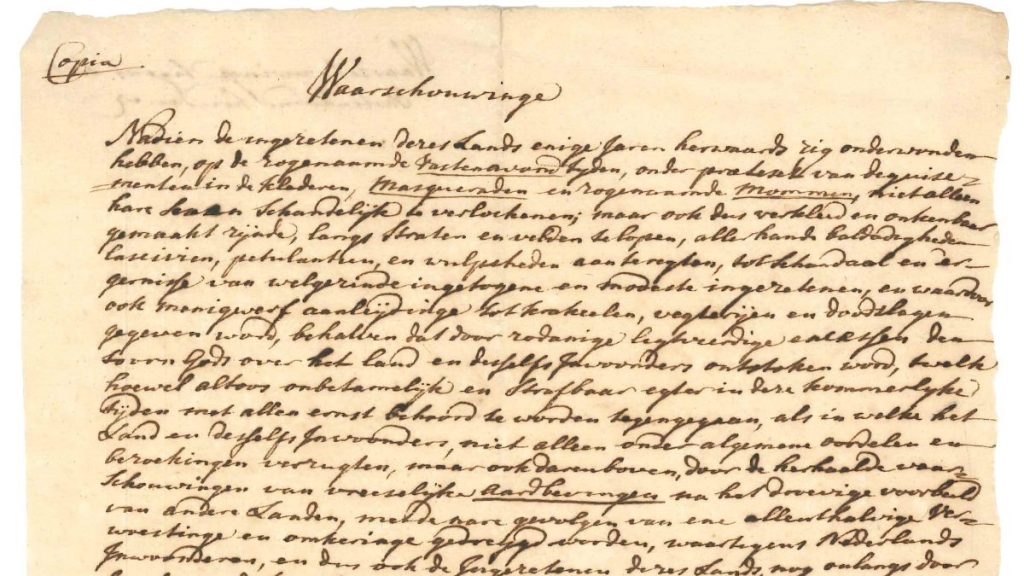 Copia
Waarschouwinge
Nadien de ingezetenen dezes Lands enige Jaren herwaards zig onderwonden
hebben, op de zogenaamde Vastenavond tyden, onder prætext van deguise-
menten in de klederen, Masqueraden en zogenaamde Mommen, niet alleen
hare Sexen Schandelijk te verlochenen; maar ook dus verkleed en onkenbaar
gemaakt zijnde, langs Straten en velden te lopen, allerhande baldadigheden
lascivien, petulantien, en vulpsheden aanteregten, tot schandaal en er-
gernisse van welgezinde ingetogene en modeste ingezetenen, en waardoor
ook menigwerf aanleijdinge tot krakeelen, vegterijen en doodslagen
gegeven word, behalven dat door zodanige ligtveerdige excessen den
toorn Gods over het land en desselfs Inwoonders ontstoken word, twelk
hoewel altoos onbetamelijk en Strafbaar egter in deze kommerlyke
tijden met allen ernst behoord te worden tegengegaan, als in welke het
Land en desselfs Inwoonders, niet alleen onder algemene oordelen en
bezoekingen verzugten, maar ook daarenboven, door de herhaalde waar-
Schouwingen van vreeselijke Aardbevingen na het droevige voorbeeld
van andere Landen, met de nare gevolgen van ene allenthalvige Ver-
woestinge en omkeringe gedreygd worden, waartegens Nederlands
Inwoonderen, en dus ook de Ingezetenen dezes Lands, nog onlangs door